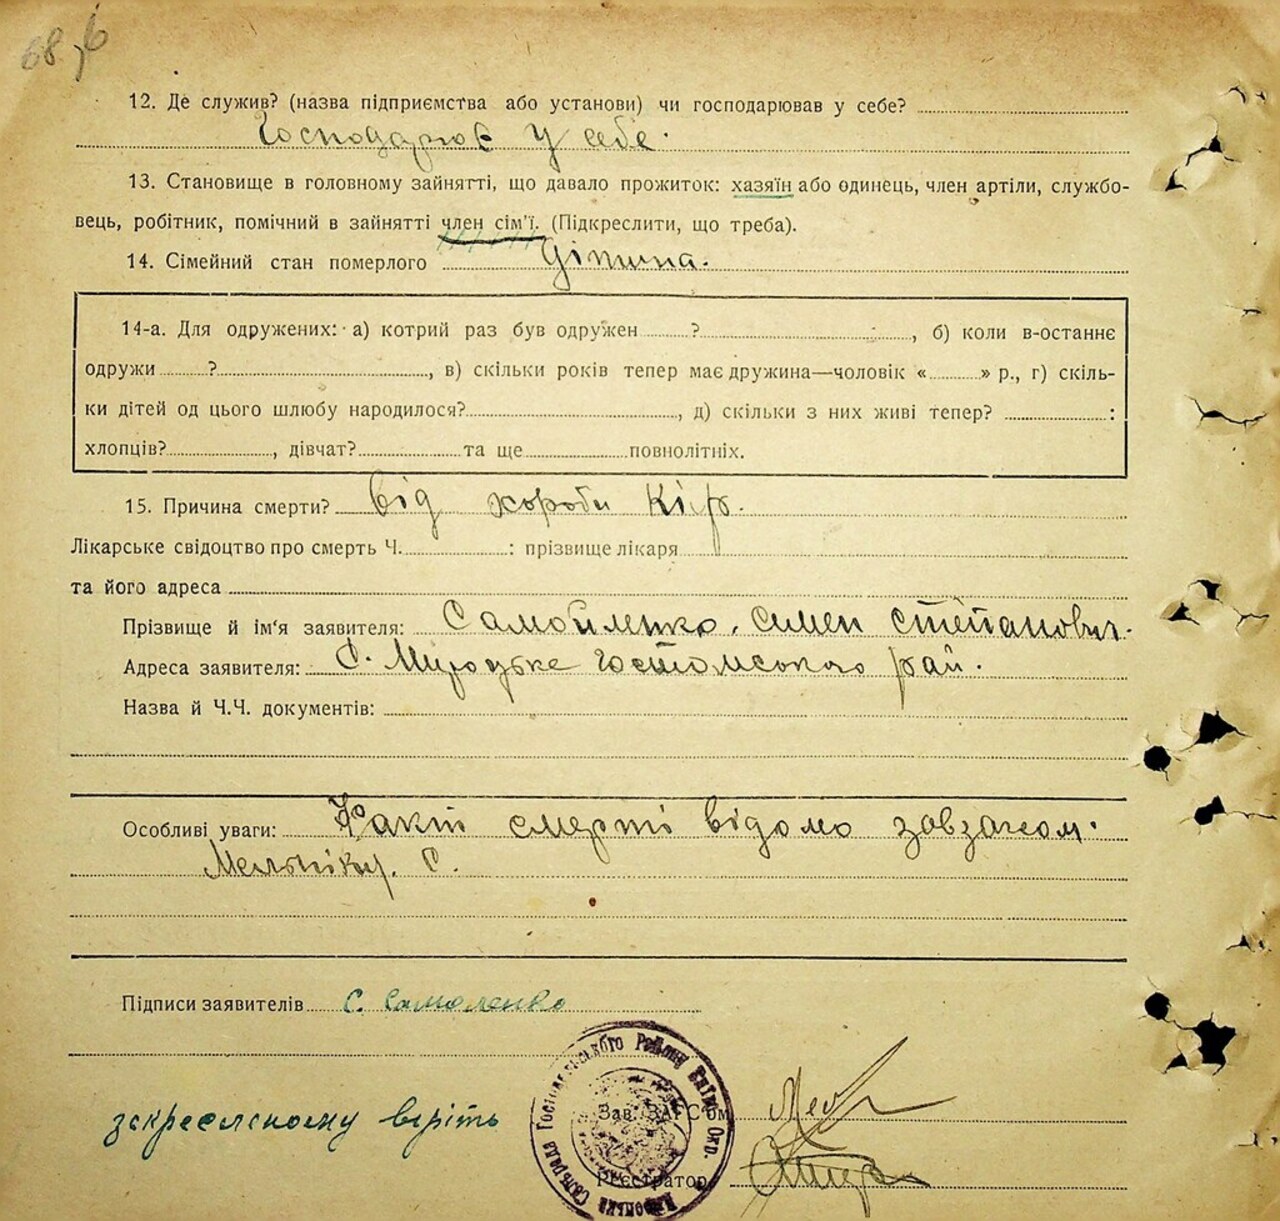 68
12. Де служив? (назва підприємства або установи) чи господарював у себе?
Господарює у себе.
13. Становище в головному зайнятті, що давало прожиток: хазяїн або одинець, член артіли, службо-
вець, робітник, помічний в зайнятті член сім'ї. (Підкреслити, що треба).
14. Сімейний стан померлого Дітина.
14-а. Для одружених: а) котрий раз був одружен ? , б) коли в-останнє
одружи ? , в) скільки років тепер має дружина—чоловік « » р., г) скіль-
ки дітей од цього шлюбу народилося? , д) скільки з них живі тепер? :
хлопців? , дівчат? та ще повнолітніх.
15. Причина смерти? Від хороби Кір.
Лікарське свідоцтво про смерть Ч. : прізвище лікаря
та його адреса
Прізвище й ім'я заявителя: Самойленко. Симен Степанович.
Адреса заявителя: С. Мироцьке Гостомського рай.
Назва й Ч.Ч. документів:
Особливі уваги: Факт смерті відомо завзагсом.
Мельніку. С.
Підписи заявителів С. Самоленко
Сільрада Району Київ. Окр.
Зав. ЗАГС'ом
закресленому веріть
Реєстратор